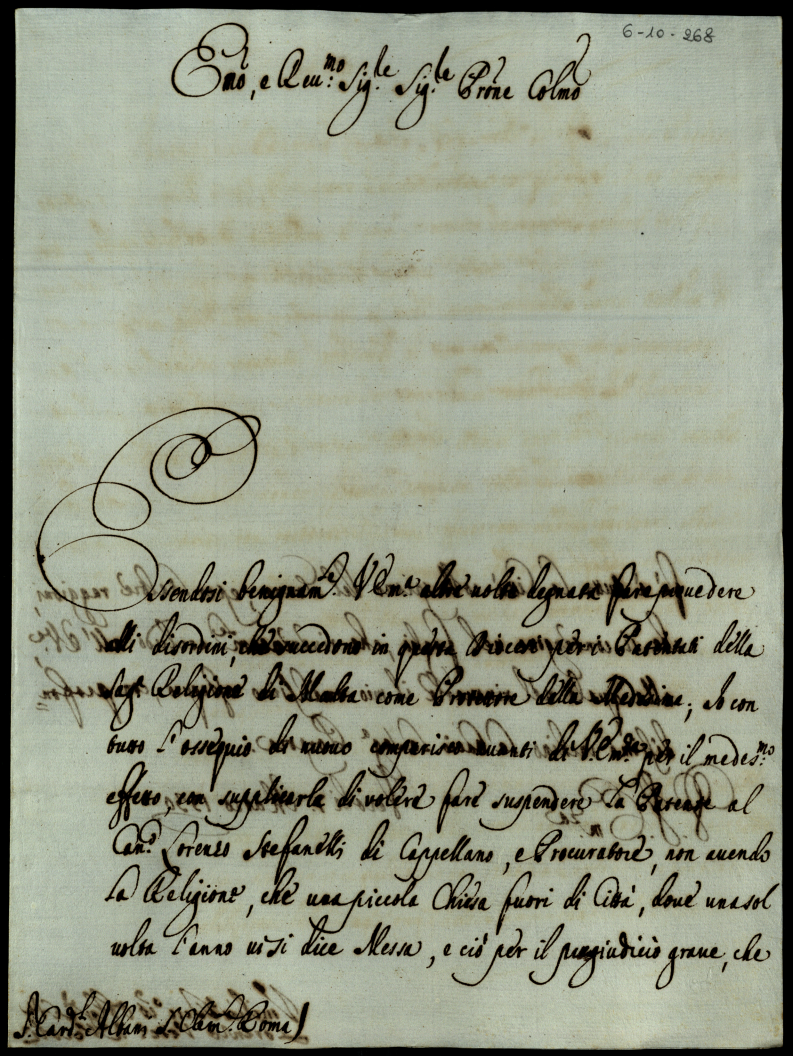 6-10-268
Emo, e Reu:mo Sig.le Sig.le Prone Colmo
Essendosi benignam.te V. Em.a altre uolte degnata fare prouedere
alli disordini, che succedono in questa Diocesi per i Patentati della
Sag.a Religione di Malta come Protettore della Medesima; Io con
tutto l'ossequio di nuouo comparisco auanti di V. Em.za per il medes:mo
effetto, con supplicarla di volere fare suspendere la Patente al
Can.co Lorenzo Stefanelli di Cappellano, e Procuratore, non auendo
la Religione, che una piccola Chiesa fuori di Città, doue una sol
uolta l'anno ui si dice Messa, e ciò per il pregiudicio graue, che
S. Card.l Albani S. Clem.te Roma